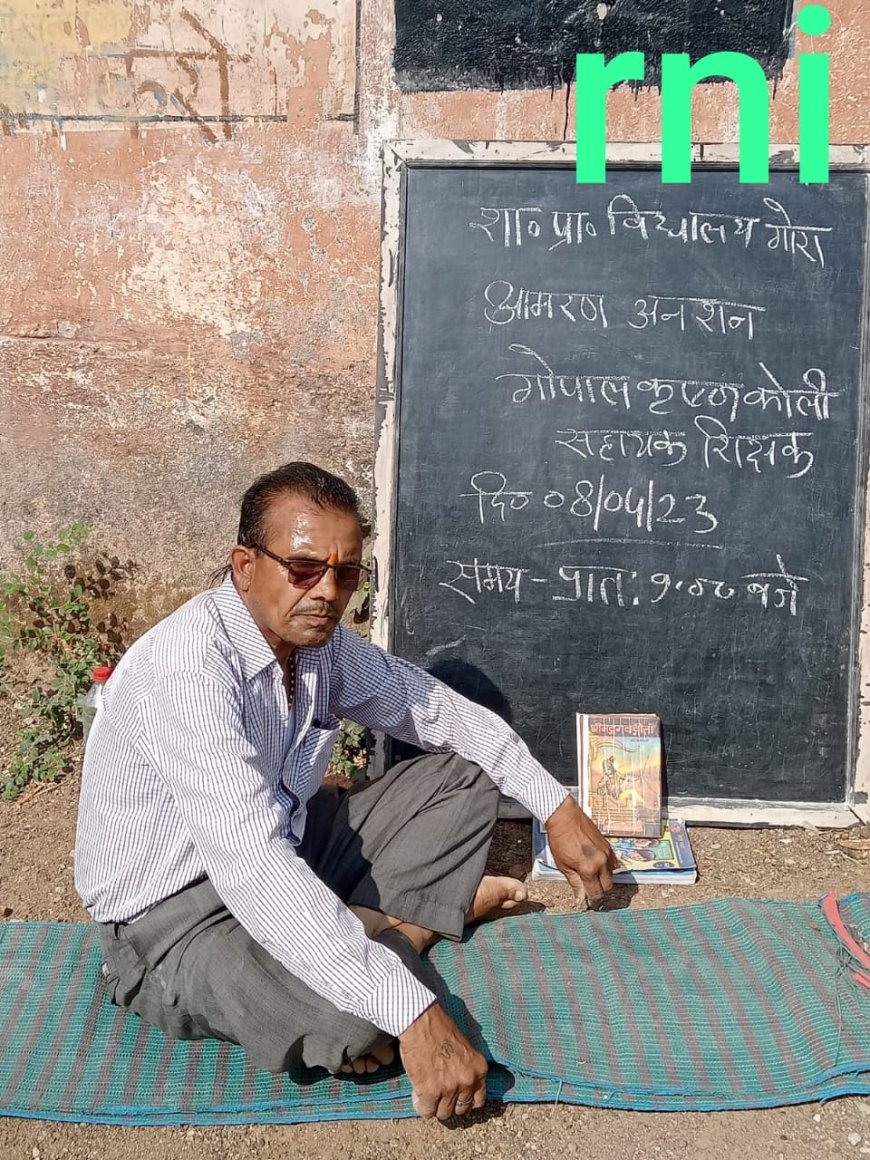 rni
शा० प्रा० विद्यालय गोरा
आमरण अनशन
गोपाल कृष्ण कोली
सहायक शिक्षक
दि० ०४/०५/23
समय - प्रातः ९:०८ बजे
श्रीमद्भगवद्गीता